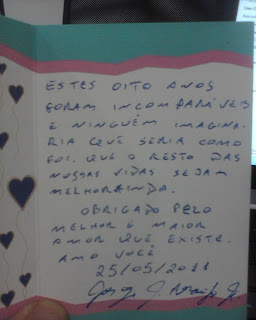 ESTES OITO ANOS
FORAM INCOMPARÁVEIS
E NINGUÉM IMAGINA-
RIA QUE SERIA COMO
FOI. QUE O RESTO DAS
NOSSAS VIDAS SEJAM
MELHOR AINDA.
OBRIGADO PELO
MELHOR E MAIOR
AMOR QUE EXISTE.
AMO VOCÊ
25/05/2011